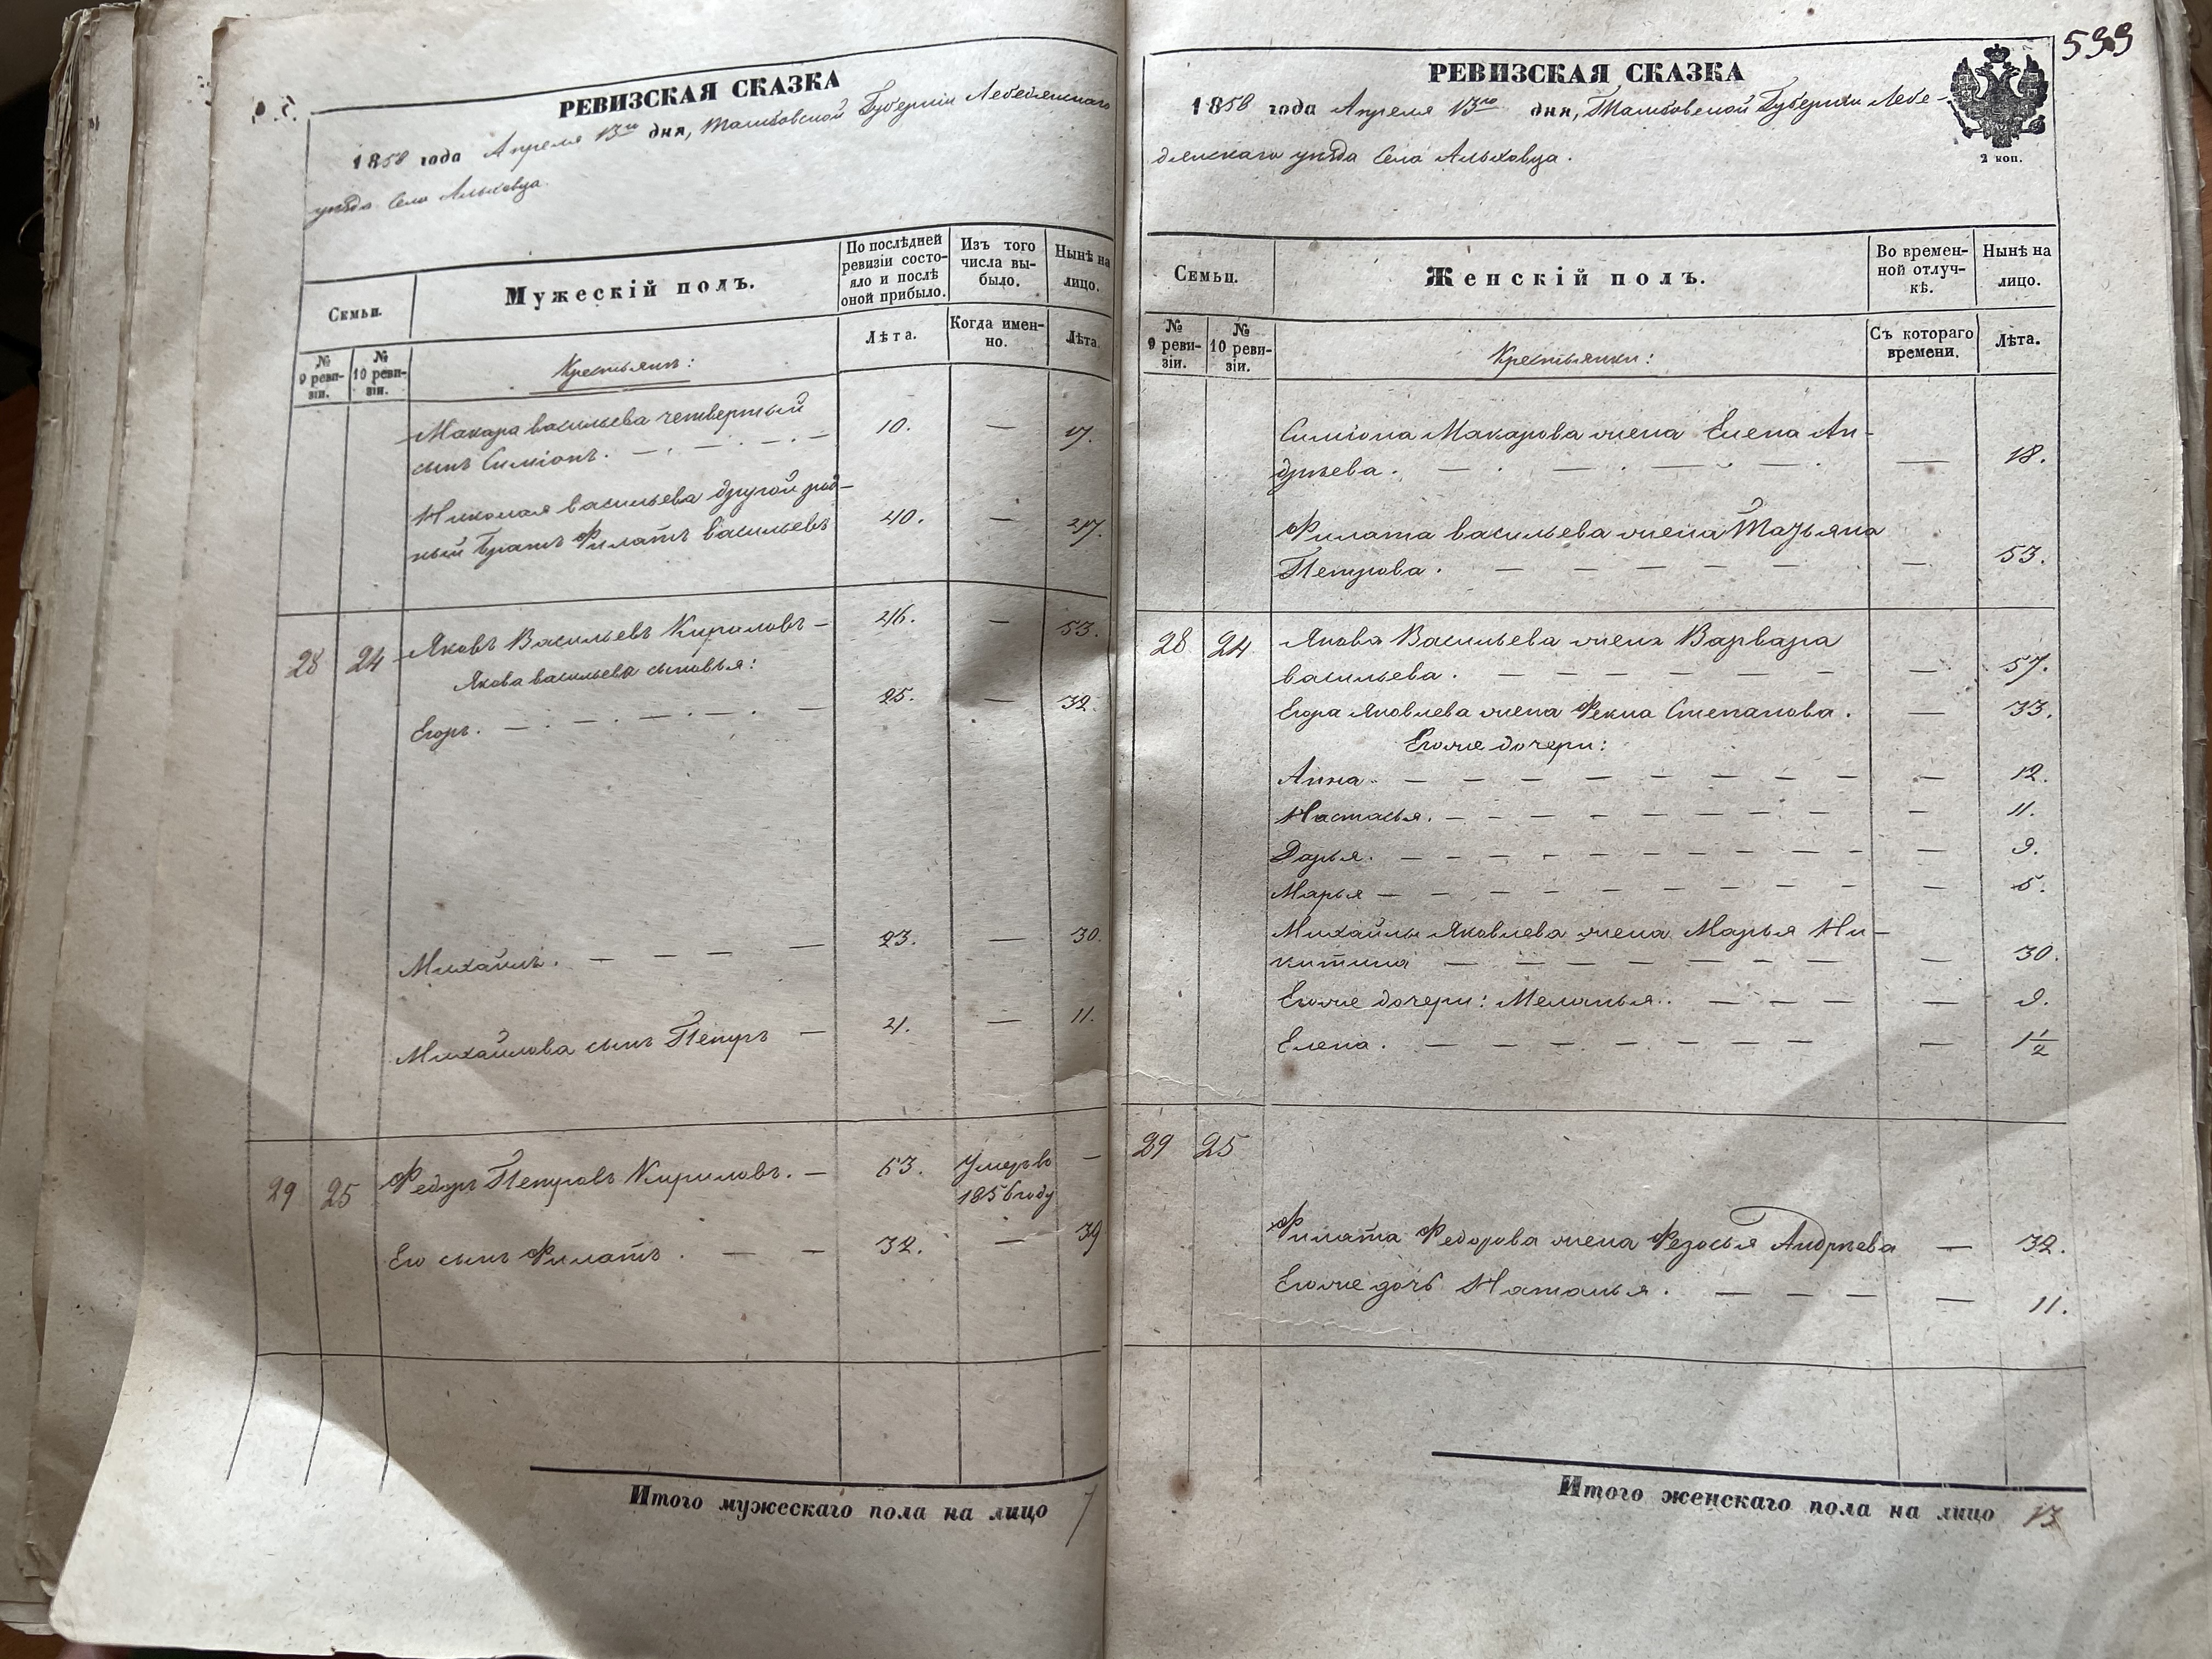 РЕВИЗСКАЯ СКАЗКА
1858 года Апреля 13го дня, Тамбовской Губернiи Лебедянскаго
уѣзда Села Альховца.
Семьи.
Мужескій полъ.
По послѣдней ревизіи состояло и послѣ оной прибыло.
Изъ того числа выбыло.
Нынѣ на лицо.
№ 9 ревизіи.
№ 10 ревизіи.
Крестьянъ:
Лѣта.
Когда именно.
Лѣта.
Макара васильева четвертый
сынъ Симіонъ. 10. — 17.
Николая васильева другой род-
ный братъ Филатъ васильевъ 40. — 47.
28 24 Яковъ Васильевъ Кириловъ — 46. — 53.
Якова васильева сыновья:
Егоръ. — 25. — 32.
Михайлъ. — 23. — 30.
Михайлова сынъ Петръ — 4. — 11.
29 25 Федоръ Петровъ Кириловъ. — 63. Умеръ во —
1856 году
Его сынъ Филатъ. — 32. — 39
Итого мужескаго пола на лицо 7
599
РЕВИЗСКАЯ СКАЗКА
1858 года Апреля 13го дня, Тамбовской Губерніи Лебе-
дянскаго уѣзда Села Альховца.
2 коп.
Семьи.
Женскій полъ.
Во временной отлучкѣ.
Нынѣ на лицо.
№ 9 ревизіи.
№ 10 ревизіи.
Крестьянки:
Съ котораго времени.
Лѣта.
Симіона Макарова жена Елена Ан-
дрѣева. — 18.
Филата васильева жена Татьяна
Петрова. — 53.
28 24 Якова Васильева жена Варвара
васильева. — 57.
Егора Яковлева жена Фекла Степанова. — 33.
Егоже дочери:
Анна — 12.
Настасья. — 11.
Дарья. — 9.
Марья — 5.
Михайлы Яковлева жена Марья Ни-
китина — 30.
Егоже дочери: Меланья. — 9.
Елена. — 1 1/2
29 25
Филата Федорова жена Федосья Андрѣева — 32.
Егоже дочь Наталья. — 11.
Итого женскаго пола на лицо 13